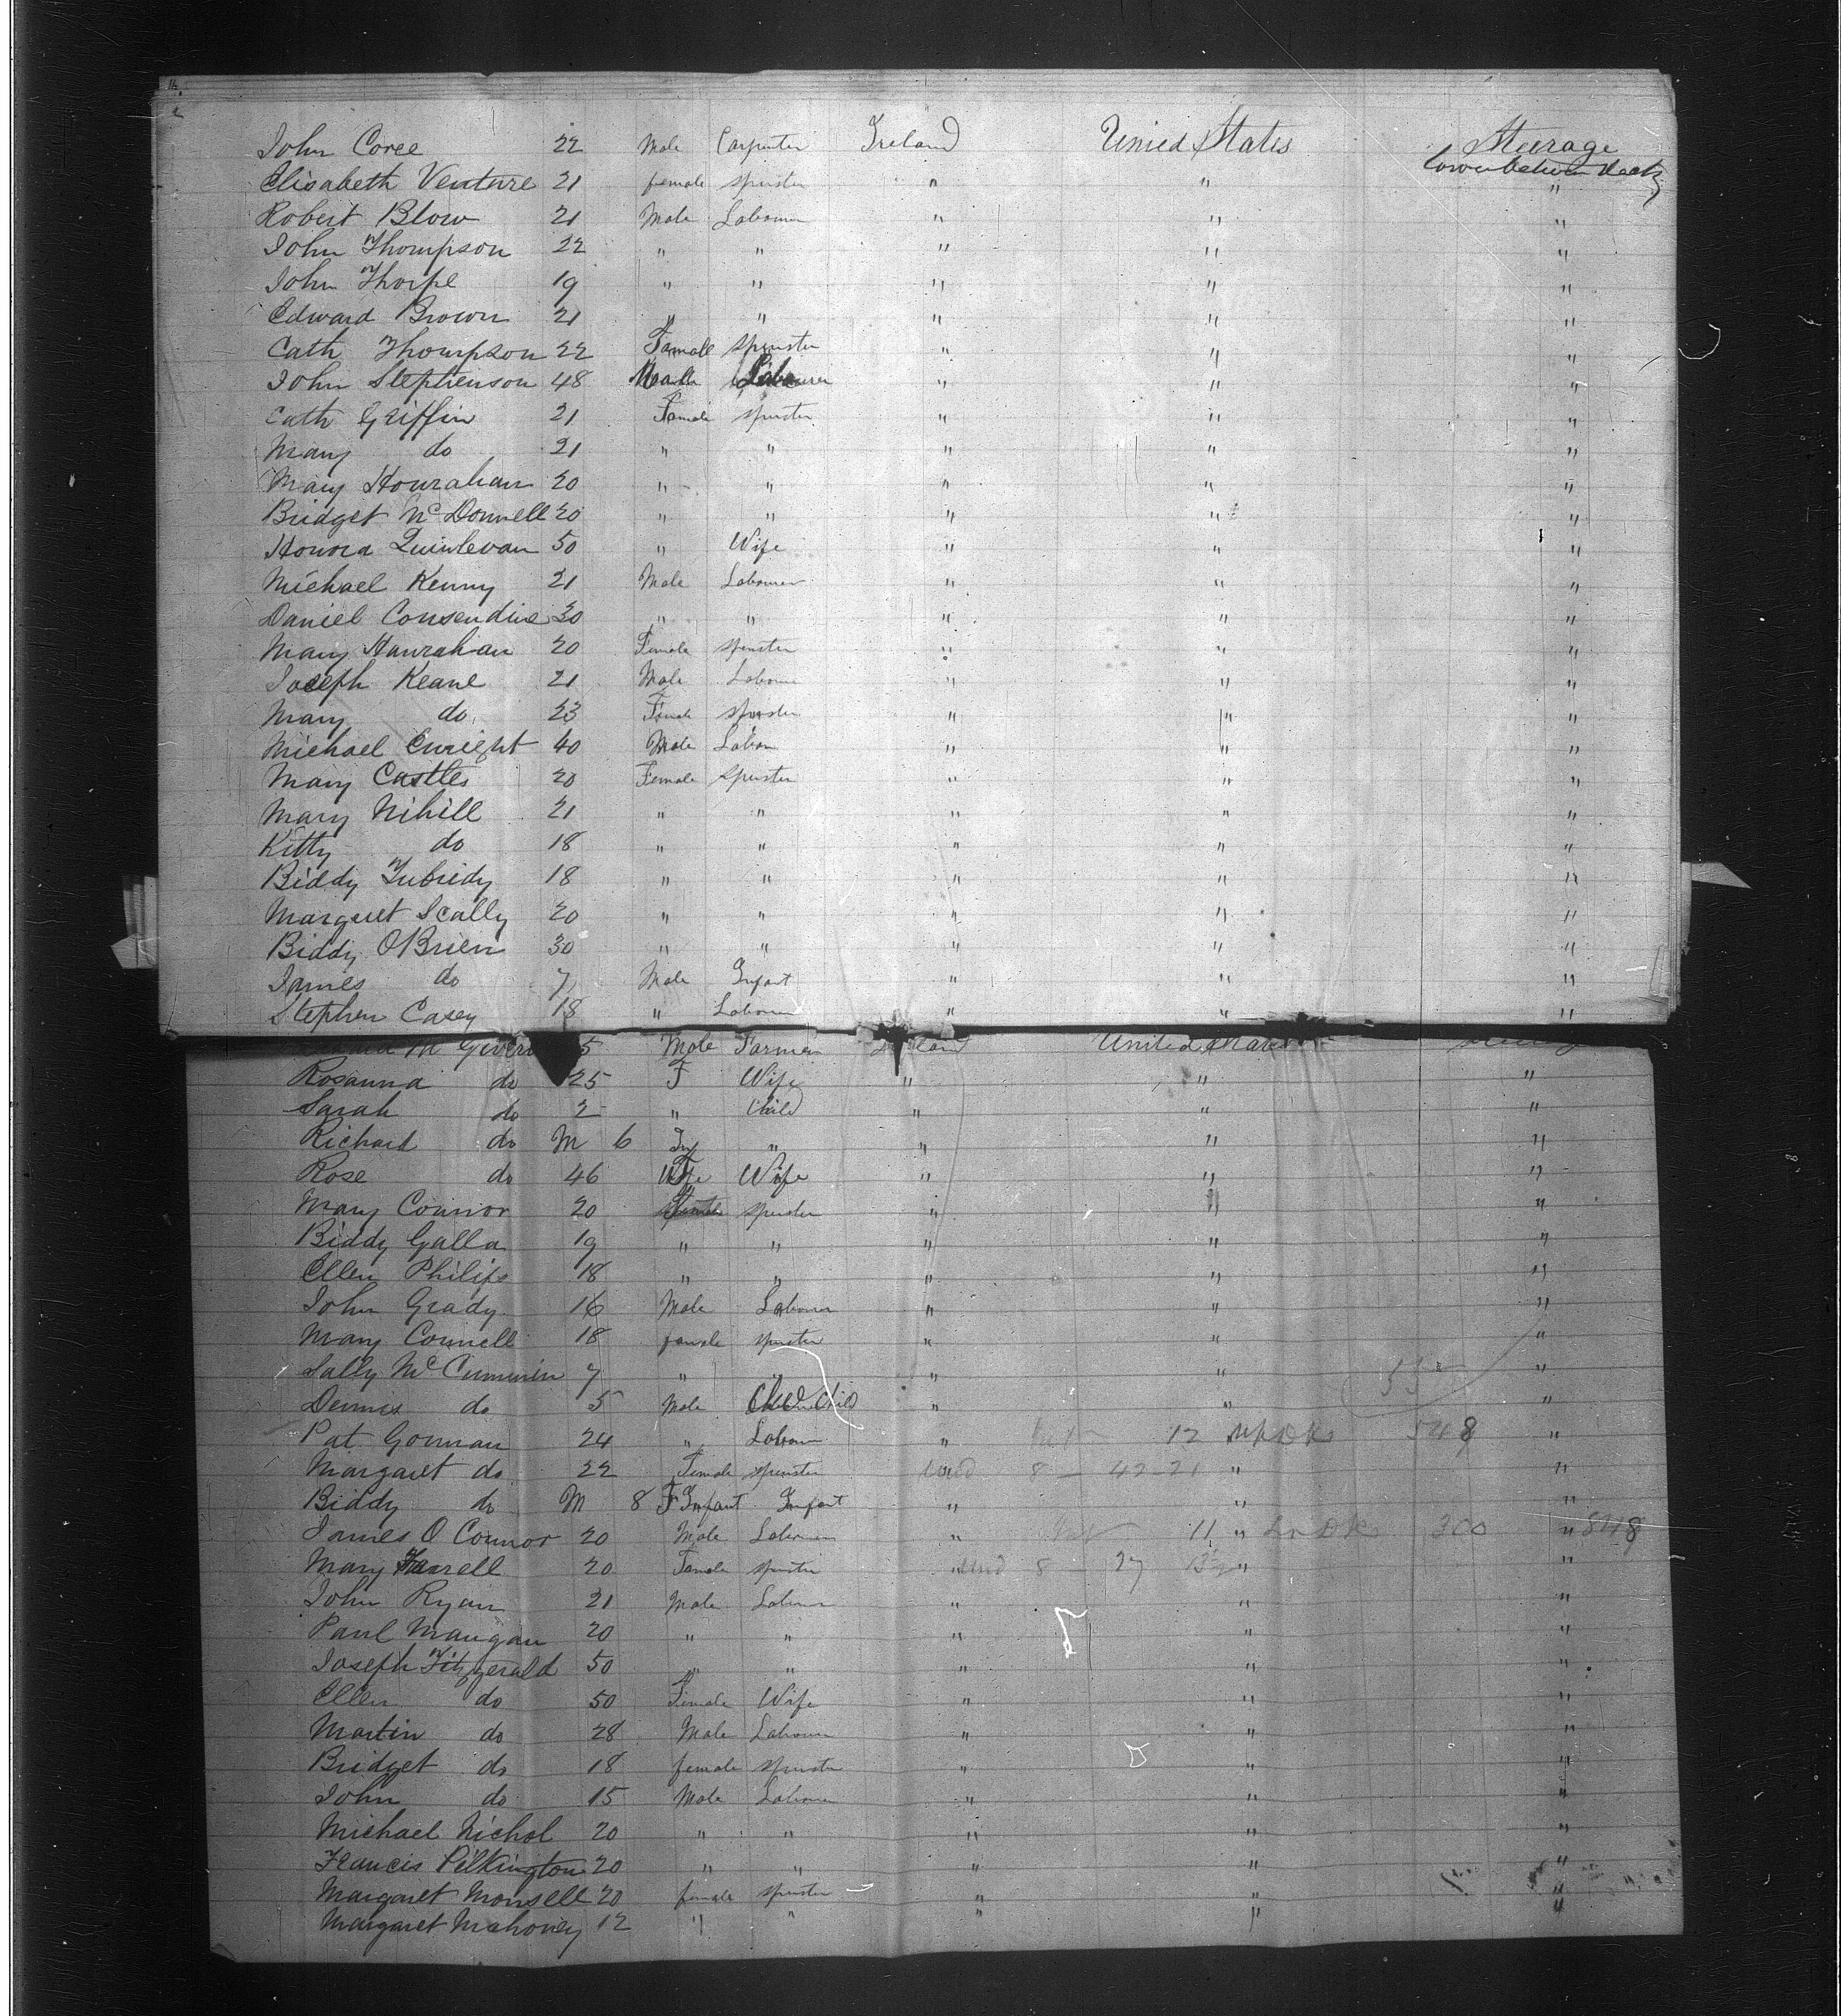 John Coree 22 Male Carpenter Ireland United States Steerage
lower between decks
Elisabeth Venture 21 female spinster " " "
Robert Blow 21 Male Labourer " " "
John Thompson 22 " " " " "
John Thorpe 19 " " " " "
Edward Brown 21 " " " " "
Cath Thompson 22 Female spinster " " "
John Stephenson 48 Male Labourer " " "
Cath Griffin 21 Female spinster " " "
Mary do 21 " " " " "
Mary Hourahan 20 " " " " "
Bridget McDonnell 20 " " " " "
Honora Quinlevan 50 " Wife " " "
Michael Kenny 21 Male Labourer " " "
Daniel Consendine 30 " " " " "
Mary Hanrahan 20 Female spinster " " "
Joseph Keane 21 Male Labourer " " "
Mary do 23 Female spinster " " "
Michael Enright 40 Male Labour " " "
Mary Castles 20 Female spinster " " "
Mary Nihill 21 " " " " "
Kitty do 18 " " " " "
Biddy Tubridy 18 " " " " "
Margaret Scally 20 " " " " "
Biddy OBrien 30 " " " " "
James do 7 Male Infant " " "
Stephen Casey 18 " Labourer " " "
5 Male Farmer United States
Rosanna do 25 F Wife " " "
Sarah do 2 " Child " " "
Richard do M 6 Inf " " " "
Rose do 46 Wife " " "
Mary Connor 20 spinster " " "
Biddy Galla 19 " " " " "
Ellen Philips 18 " " " " "
John Grady 16 Male Labourer " " "
Mary Connell 18 female spinster " " "
Sally McCummin 7 " " " "
Dennis do 5 Male Child " " "
Pat Gorman 24 " Labour " 12 548 "
Margaret do 22 Female spinster 8 - 42-21 " "
Biddy do M 8 F Infant Infant " " "
James O Connor 20 Male Labourer " 11 " 300 " 848
Mary Farrell 20 Female spinster " 8 - 27 " "
John Ryan 21 Male Labour " " "
Paul Mangan 20 " " " " "
Joseph Fitzgerald 50 " " " " "
Ellen do 50 Female Wife " " "
Martin do 28 Male Labourer " " "
Bridget do 18 female spinster " " "
John do 15 Male Labourer " " "
Michael Nichol 20 " " " " "
Francis Pilkington 20 " " " " "
Margaret Monsell 20 female spinster " " "
Margaret Mahoney 12 " " " "